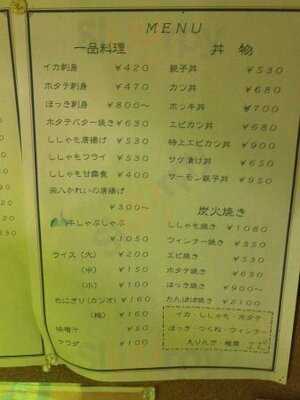 MENU
一品料理
イカ刺身 ¥420
ホタテ刺身 ¥630
ほっき刺身 ¥800～
ホタテバター焼き ¥630
ししゃも唐揚げ ¥530
ししゃもフライ ¥530
ししゃも甘露煮 ¥400
かれいの唐揚げ
¥300～
牛しゃぶしゃぶ
¥1050
ライス(大) ¥200
(中) ¥150
(小) ¥100
おにぎり(カツオ) ¥160
(梅) ¥160
味噌汁 ¥50
サラダ ¥100
丼物
親子丼 ¥530
カツ丼 ¥680
ホッキ丼 ¥700
エビカツ丼 ¥680
特上エビカツ丼 ¥900
サケ漬け丼 ¥650
サーモン親子丼 ¥950
炭火焼き
ししゃも焼き ¥1080
ウィンナー焼き ¥350
エビ焼き ¥530
ホタテ焼き ¥630
ほっき焼き ¥900～
たんぽぽ焼き ¥2100
イカ・ししゃも・ホタテ
ほっき・つくね・ウィンナー